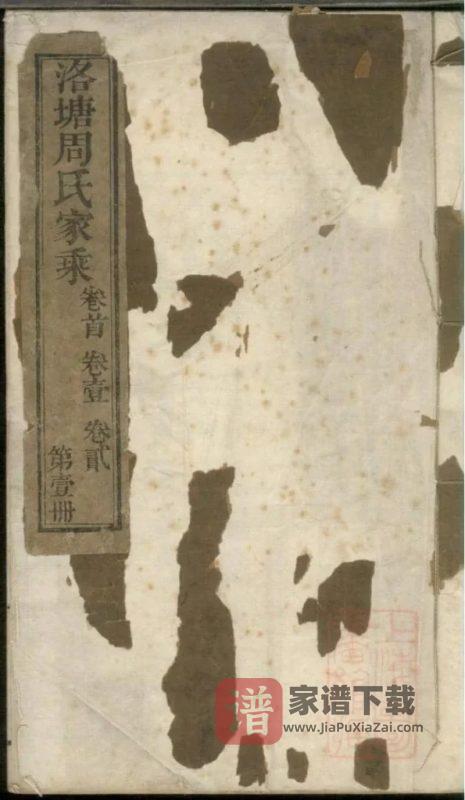 洛塘周氏家乘
卷首 卷壹 卷貳
第壹冊
譜
家谱下载
www.JiaPuXiaZai.com